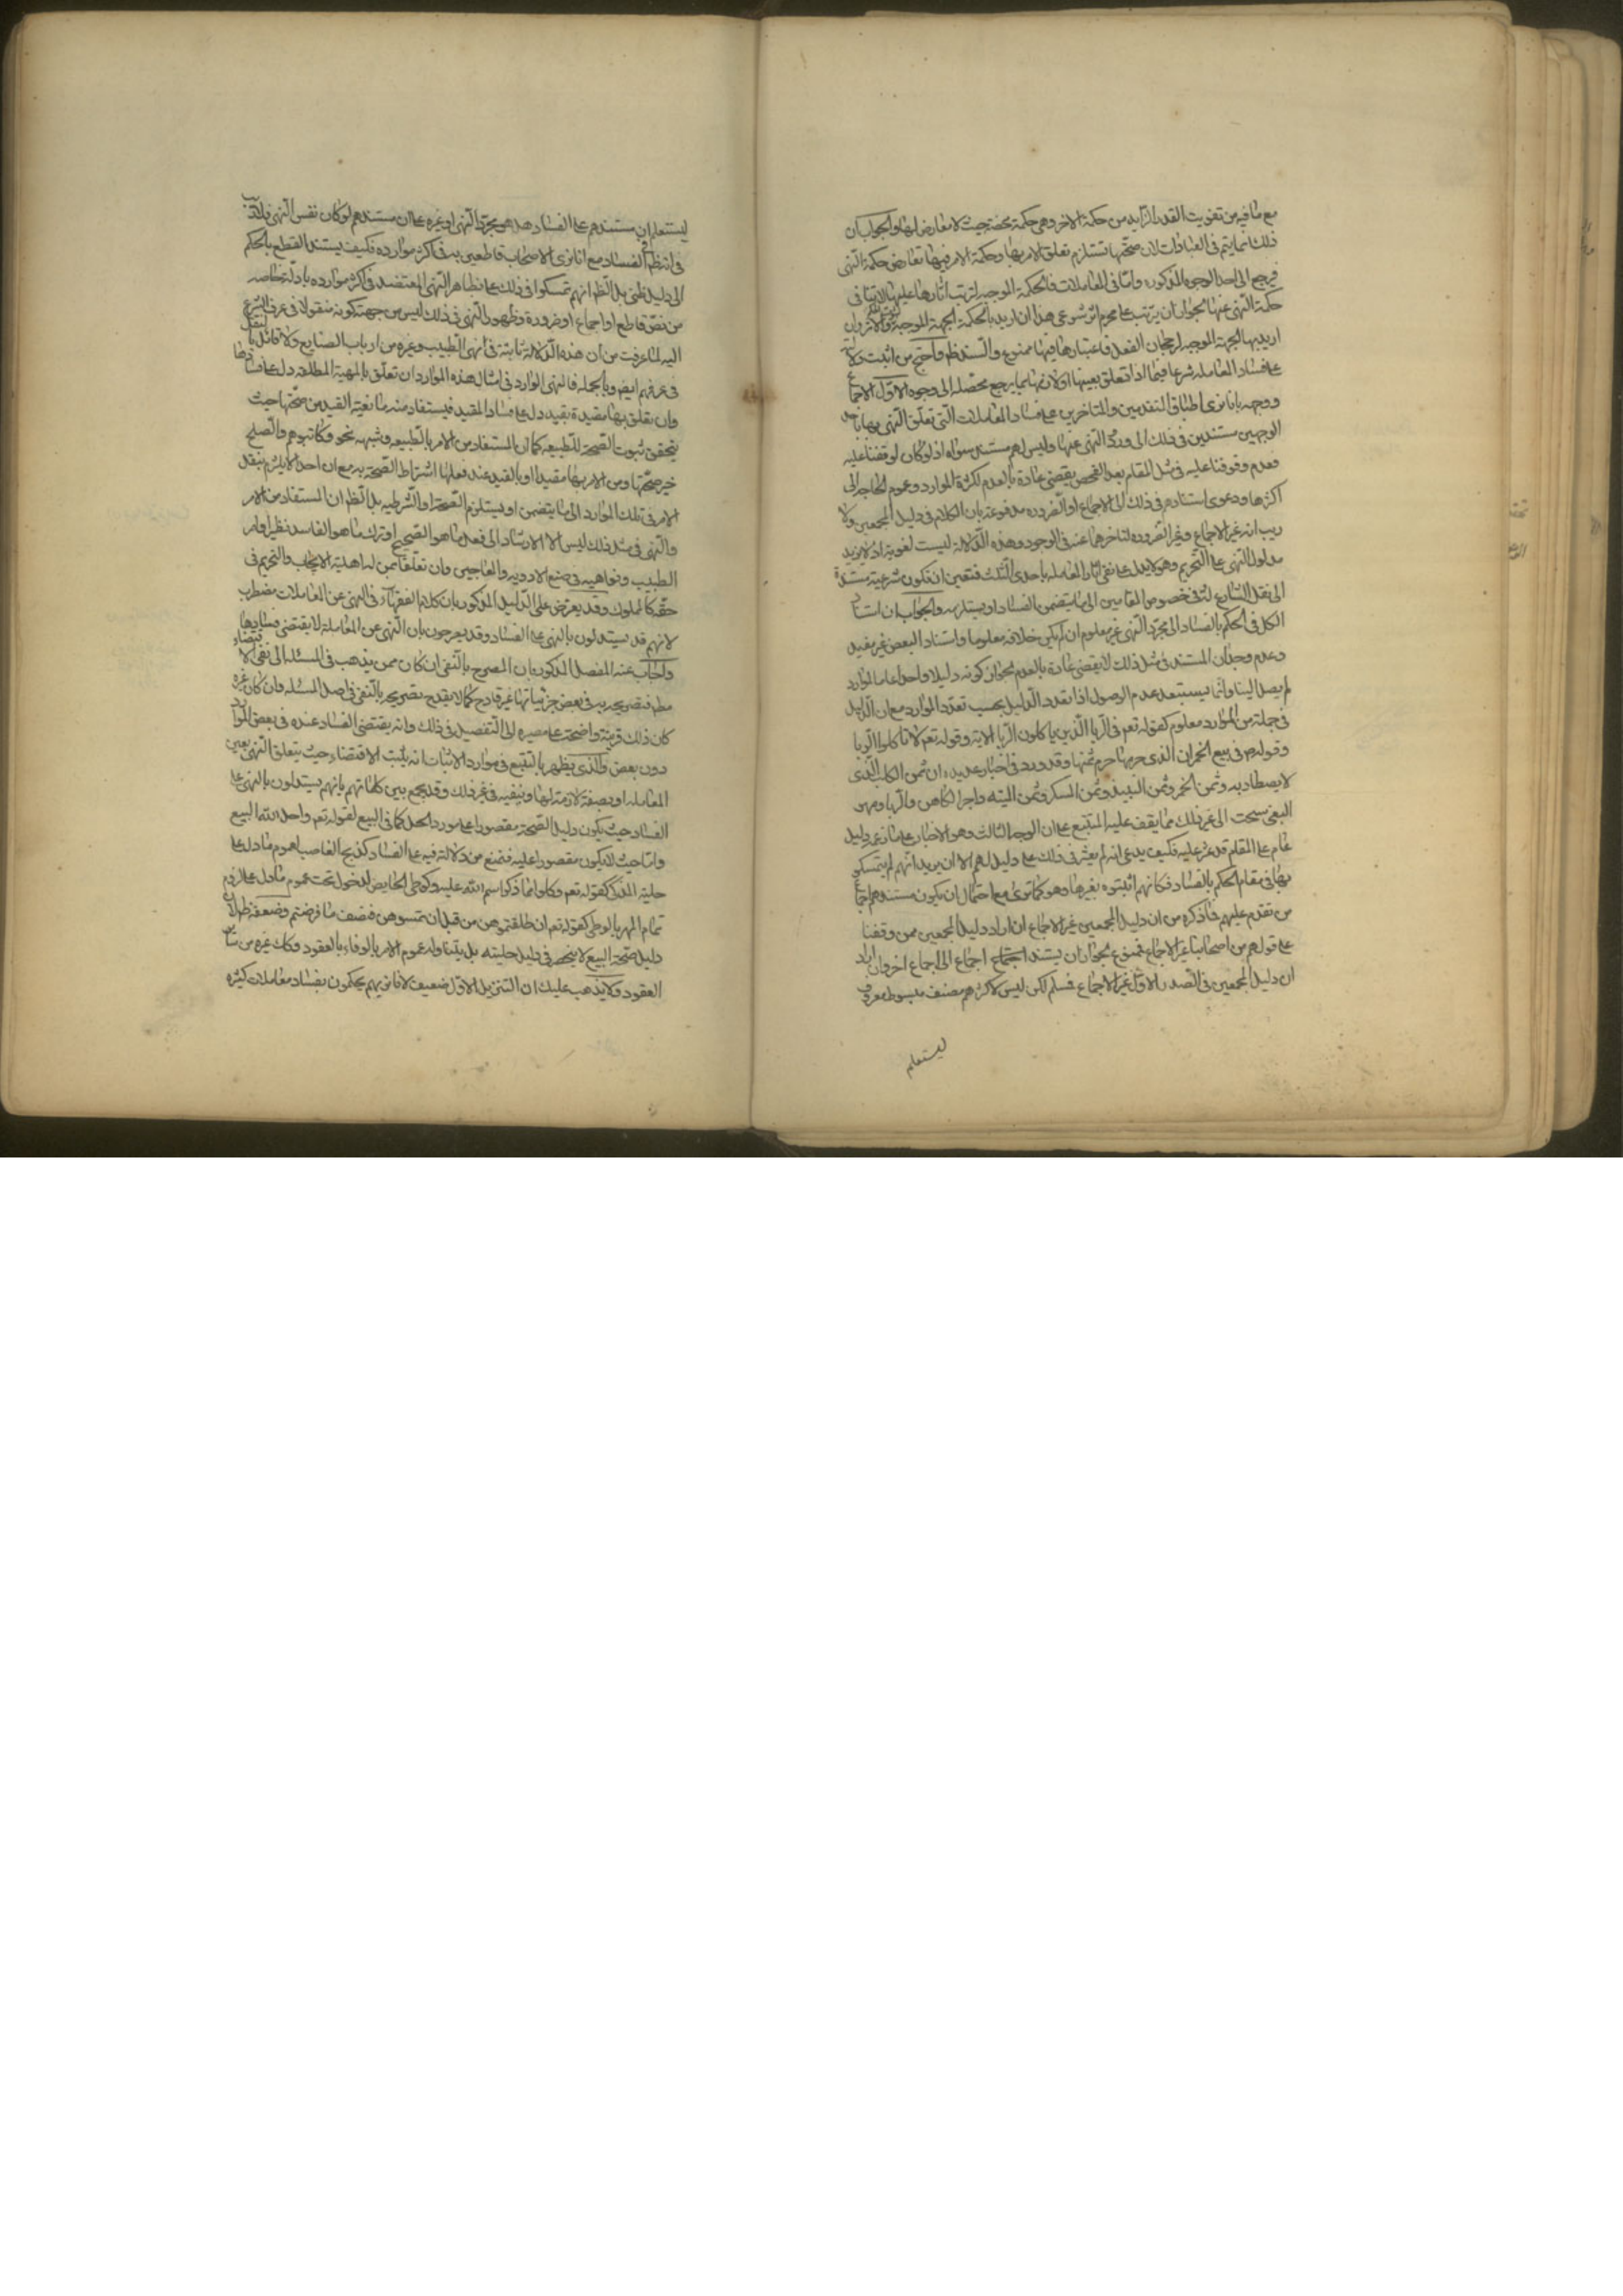 مع ما فيه من تفويت القدر الزايد من حكمة الاخر وهى حكمة محضة حيث لا معارض لها والجواب ان
ذلك انما يتم فى العبادات لان صحتها تستلزم تعلق الامر بها وحكمة الامر فيها تعارض حكمة النهى
فيرجع الى احد الوجوه المذكوره واما فى المعاملات فالحكمة الموجبه لترتب اثارها عليها لا تنافى
حكمة النهى عنها لجواز ان يترتب على محرم اثر شرعى هذا ان اريد بالحكمة الجهة الموجبة لترتب الاثر وان
اريد بها الجهة الموجبه لرجحان الفعل فاعتبارها فيها ممنوع والسند ظم واحتج من اثبت دلالته
على فساد المعامله شرعا فيما اذا تعلق بعينها او لازمها بما يرجع محصله الى وجوه الاول الاجماع
ووجهه بانا نرى اطباق المتقدمين والمتاخرين على فساد المعاملات التى تعلق النهى بها باحد
الوجهين مستندين فى ذلك الى ورود النهى عنها وليس لهم مستند سواه اذ لو كان لوقفنا عليه
فعدم وقوفنا عليه فى مثل المقام بعد الفحص يقضى عادة بالعدم لكثرة الموارد وعموم الحاجه الى
اكثرها ودعوى استنادهم فى ذلك الى الاجماع او الضروره مدفوعة بان الكلام فى دليل المجمعين ولا
ريب انه غير الاجماع وغير الضروره لتاخرهما عنه فى الوجود وهذه الدلالة ليست لغوية اذ لا يزيد
مدلول النهى على التحريم وهو لا يدل على نفى اثار المعامله باحدى الثلث فتعين ان تكون شرعية مستندة
الى نقل الشارع له فى خصوص المقامين الى ما يتضمن الفساد او يستلزمه والجواب ان استناد
الكل فى الحكم بالفساد الى مجرد النهى غير معلوم ان لم يكن خلافه معلوما واستناد البعض غير مفيد
وعدم وجدان المستند فى مثل ذلك لا يقضى عادة بالعدم لجواز كونه دليلا واحدا عاما للموارد
لم يصل الينا وانما يستبعد عدم الوصول اذا تعدد الدليل بحسب تعدد الموارد مع ان الدليل
فى جملة من الموارد معلوم كقوله تعم فى الربا الذين ياكلون الربا الاية وقوله تعم لا تاكلوا الربا
وقوله ص فى بيع الخمر ان الذى حرمها حرم ثمنها وقد ورد فى اخبار عديده ان ثمن الكلب الذى
لا يصطاد به وثمن الخمر وثمن النبيذ وثمن المسكر وثمن الميته واجر الكاهن والربا ومهر
البغى سحت الى غير ذلك مما يقف عليه المتتبع على ان الوجه الثالث وهو الاخبار على ما زعم دليل
عام على المقام قد عثر عليه فكيف يدعى انه لم يعثر فى ذلك على دليل لهم الا ان يريد انهم لم يتمسكوا
بها فى مقام الحكم بالفساد فكانهم اثبتوه بغيرها وهو كما ترى مع احتمال ان يكون مستندهم اجماع
من تقدم عليهم فما ذكره من ان دليل المجمعين غير الاجماع ان اراد دليل المجمعين ممن وقفنا
على قولهم من اصحابنا غير الاجماع فممنوع لجواز ان يستند اجماع الى اجماع اخر وان اراد
ان دليل المجمعين فى الصدر الاول غير الاجماع فمسلم لكن ليس لاكثرهم مصنف مبسوط معروف
ليستعلم
ليستعلم ان مستندهم على الفساد هل هو مجرد النهى او غيره على ان مستندهم لو كان نفس النهى فلا ريب
فى انه ظنى الفساد مع انا نرى الاصحاب قاطعين به فى اكثر موارده فكيف يستند القطع بالحكم
الى دليل ظنى بل الظم انهم تمسكوا فى ذلك على ظاهر النهى المعتضد فى اكثر موارده بادلة خاصه
من نص قاطع او اجماع او ضرورة وظهور النهى فى ذلك ليس من جهة كونه منقولا فى عرف الشرع
اليه لما عرفت من ان هذه الدلالة ثابتة فى نهى الطبيب وغيره من ارباب الصنايع ولا قائل بالنقل
فى عرفهم ايضا وبالجمله فالنهى الوارد فى امثال هذه الموارد ان تعلق بالمهية المطلقه دل على فسادها
وان تعلق بها مقيدة بقيد دل على فساد المقيد فيستفاد منه مانعية القيد من صحتها حيث
يتحقق ثبوت الصحة للطبيعه كما ان المستفاد من الامر بالطبيعه وشبهه نحو فكاتبوهم والصلح
خير صحتها ومن الامر بها مقيدا او بالقيد عند فعلها اشتراط الصحة به مع ان احدا لا يلتزم بنقل
الامر فى تلك الموارد الى ما يتضمن او يستلزم الصحة او الشرطيه بل الظم ان المستفاد من الامر
والنهى فى مثل ذلك ليس الا الارشاد الى فعل ما هو الصحيح او ترك ما هو الفاسد نظير اوامر
الطبيب ونواهيه فى صنع الادويه والمعاجين وان تعلقا بمن له اهلية الايجاب والتحريم فى
حقه كالمملوك وقد يعترض على الدليل المذكور بان كلام الفقهاء فى النهى عن المعاملات مضطرب
لانهم قد يستدلون بالنهى على الفساد وقد يصرحون بان النهى عن المعاملة لا يقتضى فسادها
واجاب عنه المفصل المذكور بان المصرح بالنفى ان كان ممن يذهب فى المسئله الى نفى الاقتضاء
مطم فتصريحه به فى بعض جزئياتها غير قادح كما لا يقدح تصريحه بالنفى فى اصل المسئله وان كان غيره
كان ذلك قرينة واضحة على مصيره الى التفصيل فى ذلك وانه يقتضى الفساد عنده فى بعض الموارد
دون بعض والذى يظهر بالتتبع فى موارد الاثبات انه يثبت الاقتضاء حيث يتعلق النهى بعين
المعامله او بصفة لازمة لها وينفيه فى غير ذلك وقد يجمع بين كلماتهم بانهم يستدلون بالنهى على
الفساد حيث يكون دليل الصحة مقصورا على مورد الحل كما فى البيع لقوله تعم واحل الله البيع
واما حيث لا يكون مقصورا عليه فتمنع من دلالة فيه على الفساد كذبح الغاصب لعموم ما دل على
حلية المذكى كقوله تعم فكلوا مما ذكر اسم الله عليه وكوطى الحايض لدخوله تحت عموم ما دل على لزوم
تمام المهر بالوطى كقوله تعم ان طلقتموهن من قبل ان تمسوهن فنصف ما فرضتم وضعفه ظم لان
دليل صحة البيع لا ينحصر فى دليل حليته بل يتناوله عموم الامر بالوفاء بالعقود وكك غيره من ساير
العقود ولا يذهب عليك ان التنزيل الاول ضعيف لانا نريهم يحكمون بفساد معاملات كثيره